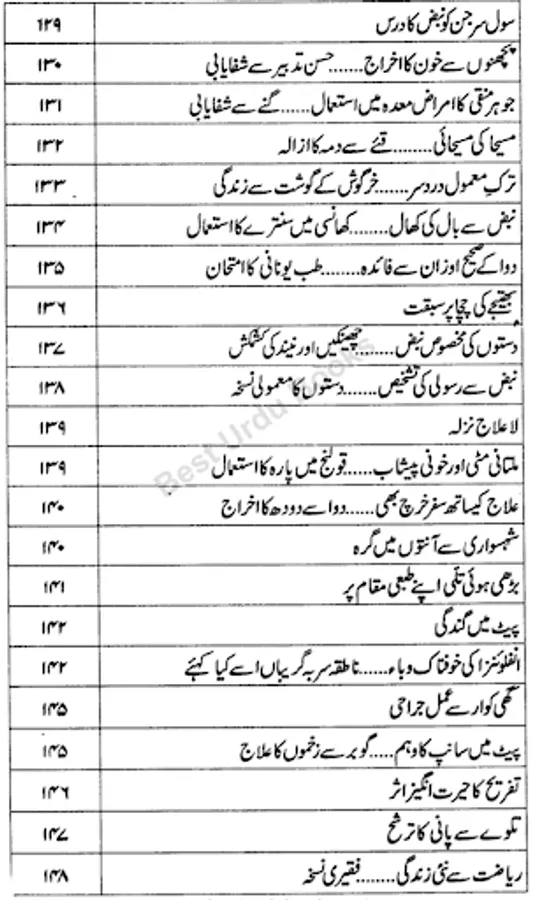 سول سرجن کو نبض کا درس ۱۲۹
پچھنوں سے خون کا اخراج.......حسن تدبیر سے شفایابی ۱۳۰
جوہر منقی کا امراض معدہ میں استعمال......گنے سے شفایابی ۱۳۱
مسیحا کی مسیحائی........قئے سے دمہ کا ازالہ ۱۳۲
ترکِ معمول دردسر.......خرگوش کے گوشت سے زندگی ۱۳۳
نبض سے بال کی کھال........کھانسی میں سنترے کا استعمال ۱۳۴
دوا کے صحیح اوزان سے فائدہ........طب یونانی کا امتحان ۱۳۵
بھتیجے کی چچا پر سبقت ۱۳۶
دستوں کی مخصوص نبض........چھینکیں اور نیند کی کشمکش ۱۳۷
نبض سے رسولی کی تشخیص.......دستوں کا معمولی نسخہ ۱۳۸
لاعلاج نزلہ ۱۳۹
ملتانی مٹی اور خونی پیشاب......قولنج میں پارہ کا استعمال ۱۳۹
علاج کیساتھ سفر خرچ بھی......دوا سے دودھ کا اخراج ۱۴۰
شہسواری سے آنتوں میں گرہ ۱۴۰
بڑھی ہوئی تلی اپنے طبعی مقام پر ۱۴۱
پیٹ میں گندگی ۱۴۲
انفلوئنزا کی خوفناک وباء......ناطقہ سر بہ گریباں اسے کیا کہئے ۱۴۲
گھی کوار سے عمل جراحی ۱۴۵
پیٹ میں سانپ کا وہم.....گوبر سے زخموں کا علاج ۱۴۵
تفریح کا حیرت انگیز اثر ۱۴۶
تلوے سے پانی کا ترشح ۱۴۷
ریاضت سے نئی زندگی........فقیری نسخہ ۱۴۸
Best Urdu Books